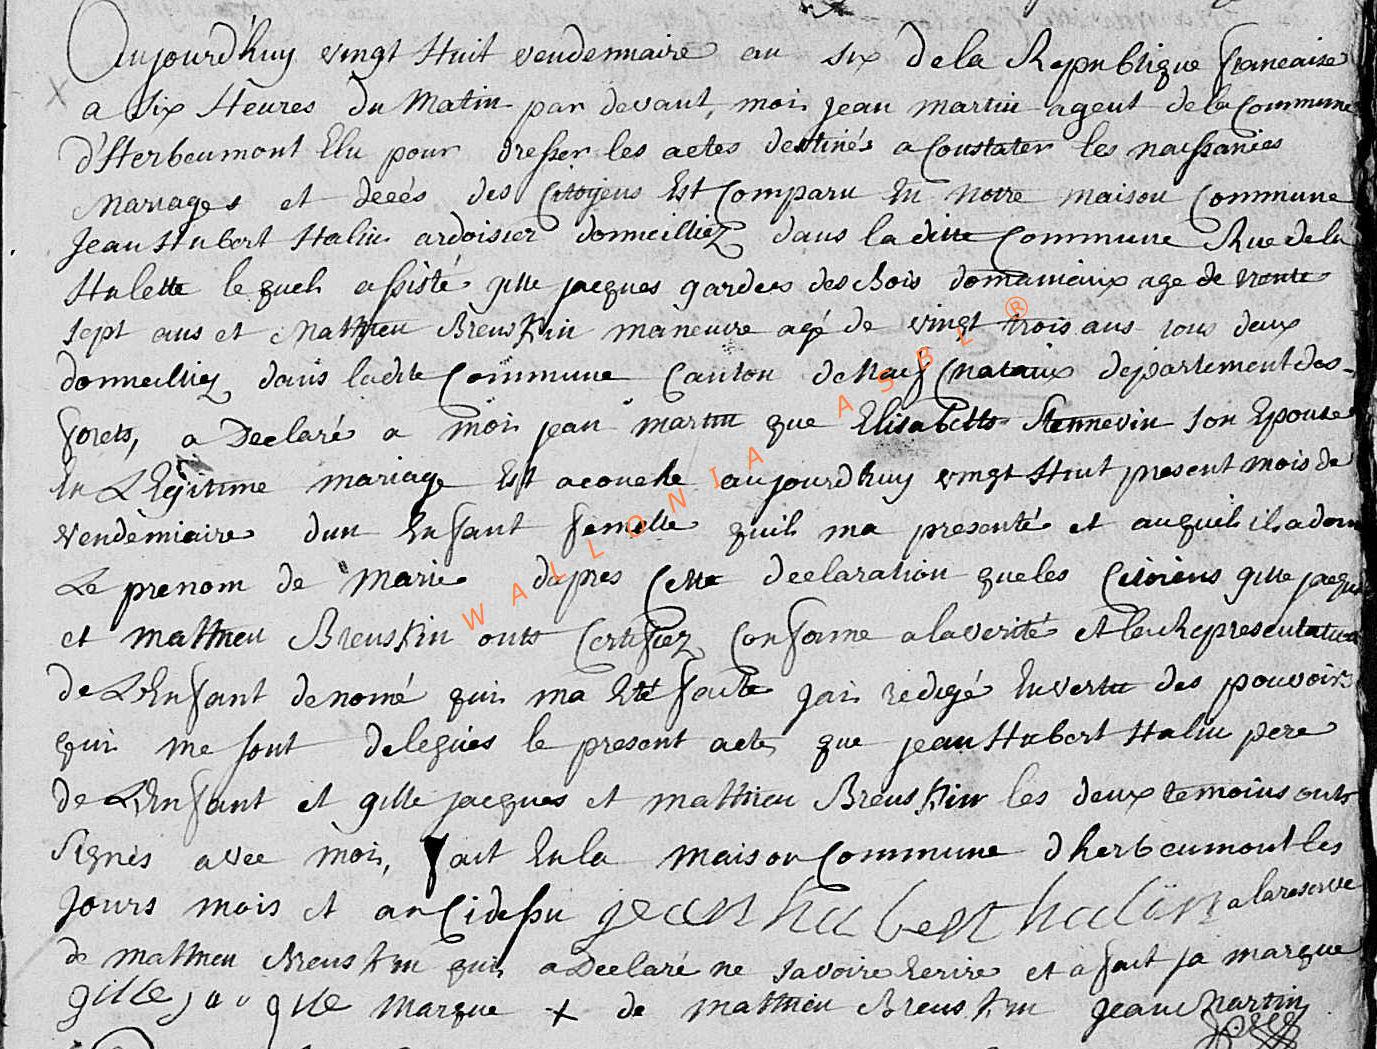 Aujourd'huy vingt Huit vendennaire an six de la Republique francaise
a six Heures du Matin par devant, moi jean martin agent de la Commune
d'Herbeumont Elu pour dresser les actes destinés a Constater les naissances
Mariages et decés des Citoyens Est Comparu En Notre maison Commune
Jean Hubert Halin ardoisier domeilliez dans la ditte Commune Rue de la
Hulette le quel assisté gille jacques gardes des bois domaniaux age de trente
sept ans et Mathieu Breuskin maneuvre agé de vingt trois ans tous deux
domeilliez dans ladite Commune Canton de Neuf Chataux departement des
forets, a Declaré a moi jean martin que Elisabette Stennevin son Epouse
En LEgitime mariage Est acouche aujourdhuy vingt Huit present mois de
vendemiaire dun Enfant femelle quil ma presenté et auquel il a donn
Le prenom de Marie dapres Cette declaration que les Citoiens gille jacque
et Mathieu Breuskin onts Certifiez Conforme a la verité et la Representation
de LEnfant denomé qui ma Eté faite jai redigé Envertu des pouvoirs
qui me sont delegués le present acte que jean Hubert Halin pere
de LEnfant et gille jacques et mathieu Breuskin les deux temoins onts
Signés avec moi, fait En la maison Commune dherbeumont les
Jours mois et an Cidessu jean hubert halin a la reserve
de mathieu Breuskin qui a Declaré ne savoire Ecrire et a fait sa marque
gille Marque + de mathieu Breuskin Jean Martin
WALLONIA ASBL ®